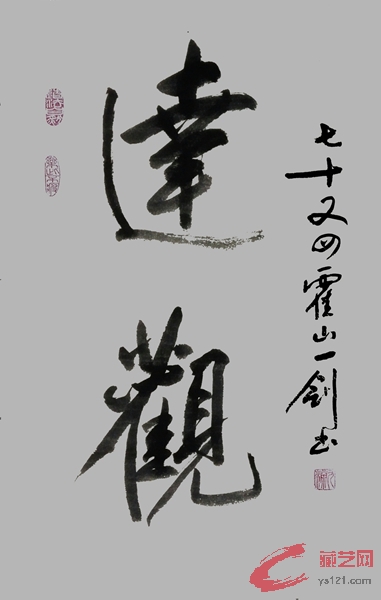 達觀
七十又四霍山一剑书
藏艺网
ys121.com